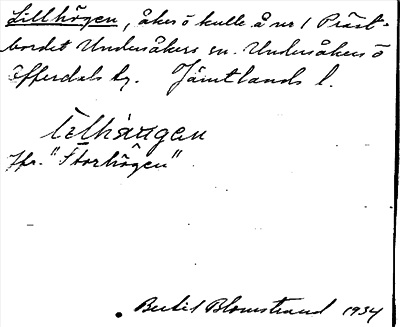 Lillhögen, åker o kulle å nr 1 Präst-
bordet Undersåkers sn. Undersåkers o
Offerdals tg. Jämtlands l.
Jfr. "Storhögen"
Bertil Blomstrand 1934